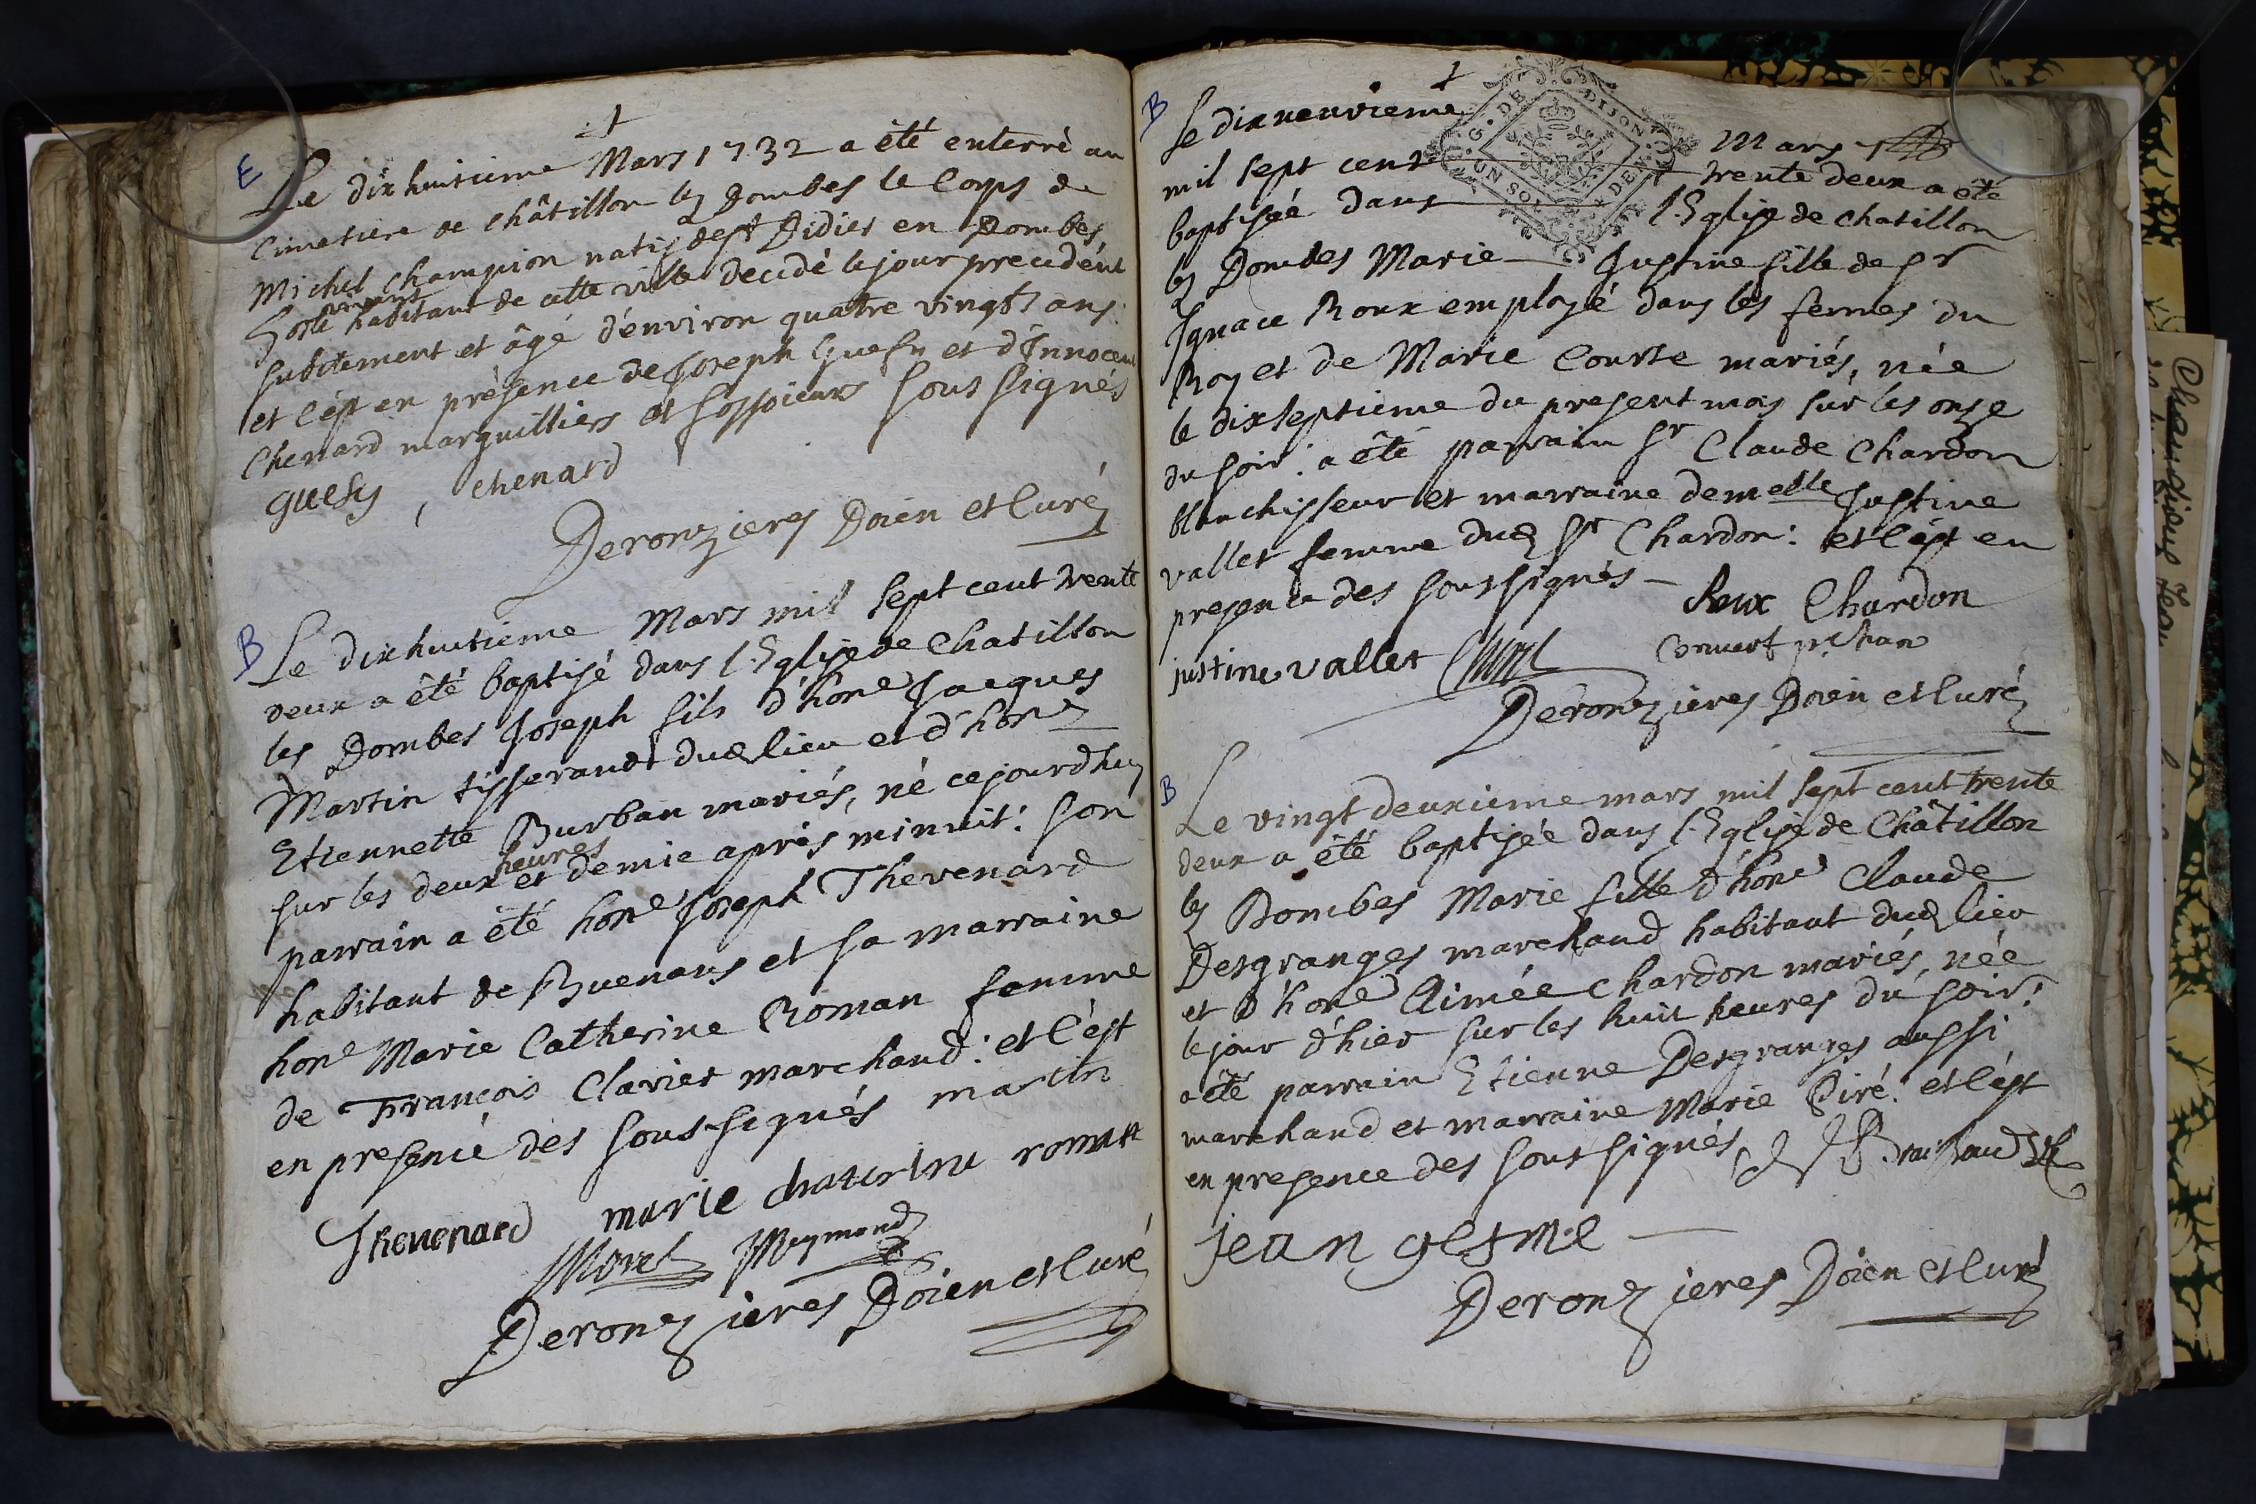 E
Le dixhuitieme Mars 1732 a êté enterré au
Cimetiere de châtillon lez Dombes le Corps de
Michel Champion natif de St Didier en Dombes
vivant
habitant de cette ville decedé le jour precedént
subitement et âgé d'environ quatre vingts ans
et c'ést en présence de Joseph Guesy et d'Innocent
Chenard marguilliers et fossoieurs soussignés
guesy, chenard
Deronzieres Doien et Curé
B
Le dixhuitieme Mars mil sept cent trente
deux a été baptisé dans l'Eglise de Chatillon
les Dombes Joseph fils d'hone Jacques
Martin tisserandt dud lieu et d'hone
Etiennette Burban mariés, né cejourdhuy
heures
sur les deux et demie aprés minuit: son
parrain a êté hone Joseph Thevenard
habitant de Buenans et sa marraine
hone Marie Catherine Roman femme
de François Clavier marchand: et c'ést
en presence des soussignés martin
Thevenard marie chaterine roman
Morel Reymond
Deronzieres Doien et Curé
G. DE DIJON
UN SOL DEN
B
Le dixneuvieme Mars
mil sept cent trente deux a êté
baptisée dans l'Eglise de Chatillon
lez Dombes Marie Justine fille de Sr
Ignace Roux employé dans les fermes du
Roy et de Marie Courte mariés, née
le dixseptieme du present mois sur les onze
du soir: a êté parrain Sr Claude Chardon
blanchisseur et marraine demelle Justine
vallet femme dud Sr Chardon: et c'ést en
presence des soussignés
Roux Chardon
justine vallet
Deronzieres Doien et Curé
B
Le vingtdeuxieme mars mil sept cent trente
deux a êté baptisée dans l'Eglise de Châtillon
lez Dombes Marie fille d'hone Claude
Desgranges marchand habitant dud lieu
et d'hone Aimée Chardon mariés, née
le jour d'hier sur les huit heures du soir:
a êté parrain Etienne Desgranges aussi
marchand et marraine Marie Piré: et c'ést
en presence des soussignés
jean
Deronzieres Doien et Curé